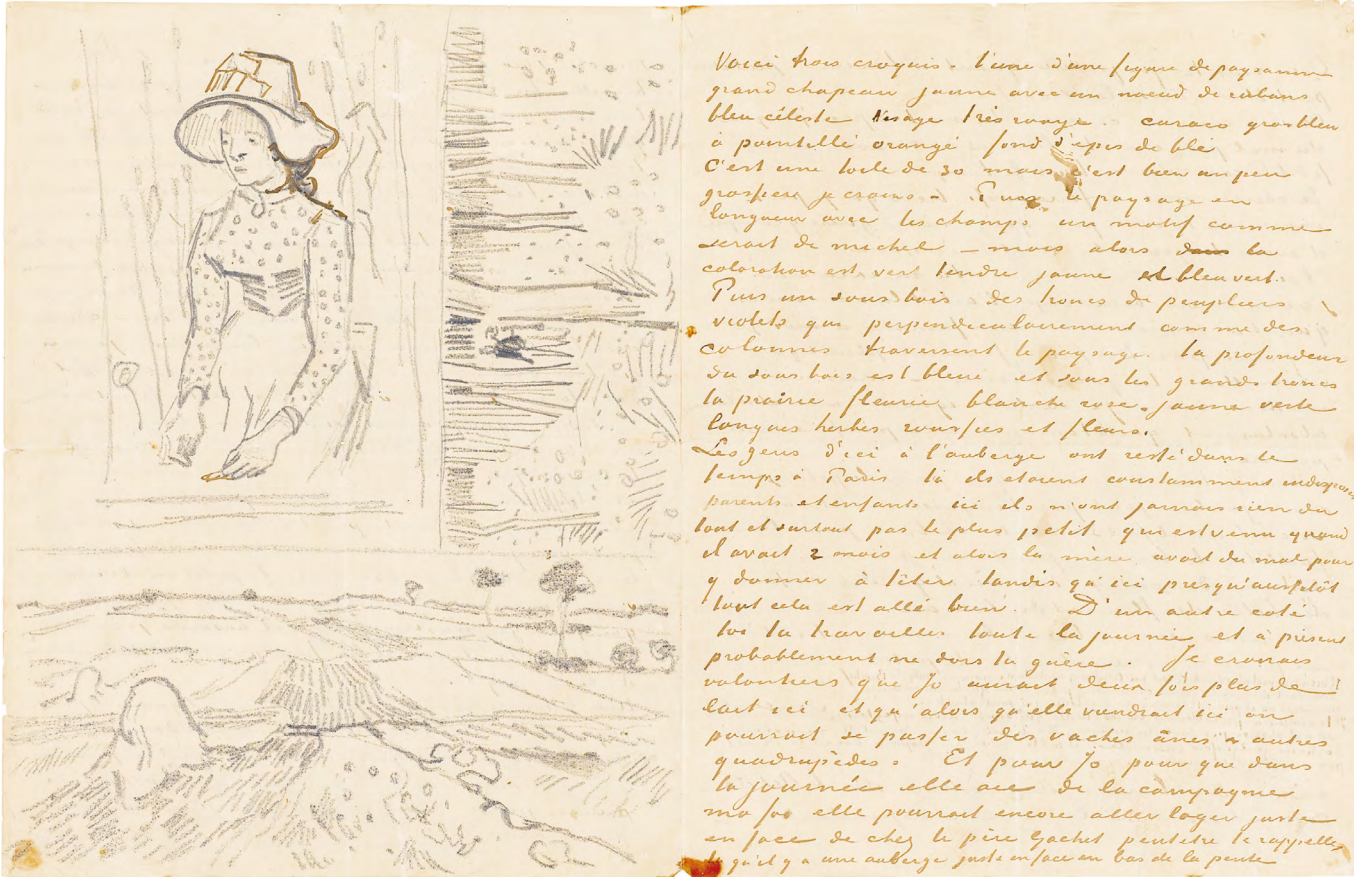 Voici trois croquis – l'une d'une figure de paysanne
grand chapeau jaune avec un noeud de rubans
bleu céleste visage très rouge. caraco gros bleu
à pointillé orangé fond d'épis de blé
C'est une toile de 30 mais c'est bien un peu
grossière je crains – Puis le paysage en
longueur avec les champs un motif comme
serait de michel – mais alors la
coloration est vert tendre jaune et bleu vert.
Puis un sous bois des troncs de peupliers
violets qui perpendiculairement comme des
colonnes traversent le paysage. la profondeur
du sous bois est bleue et sous les grands troncs
la prairie fleurie blanche rose. jaune verte
longues herbes roussies et fleurs.
Les gens d'ici à l'auberge ont resté dans le
temps à Paris là ils etaient constamment indisposés
parents et enfants ici ils n'ont jamais rien du
tout et surtout pas le plus petit qui est venu quand
il avait 2 mois et alors la mère avait du mal pour
y donner à têter tandis qu'ici presqu'aussitôt
tout cela est allé bien. D'un autre coté
toi tu travailles toute la journée et à présent
probablement ne dors tu guère. Je croirais
volontiers que Jo aurait deux fois plus de
lait ici et qu'alors qu'elle viendrait ici on
pourrait se passer des vaches ânes & autres
quadrupèdes. Et pour Jo pour que dans
la journée elle aie de la campagne
ma foi elle pourrait encore aller loger juste
en face de chez le père Gachet peutêtre te rappelles
tu qu'il y a une auberge juste en face en bas de la pente